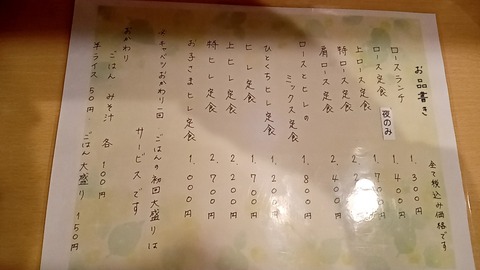 お品書き
全て税込み価格です
ロースランチ 1,300円
ロース定食 1,400円
上ロース定食 夜のみ 1,700円
特ロース定食
肩ロース定食 2,400円
ロースとヒレの
ミックス定食 1,800円
ひとくちヒレ定食 1,200円
ヒレ定食 1,700円
上ヒレ定食 2,200円
特ヒレ定食 2,700円
お子さまヒレ定食 1,000円
☆キャベツおかわり一回 ごはんの初回大盛りは
サービスです
おかわり
ごはん みそ汁 各100円
半ライス 50円 ごはん大盛り 150円